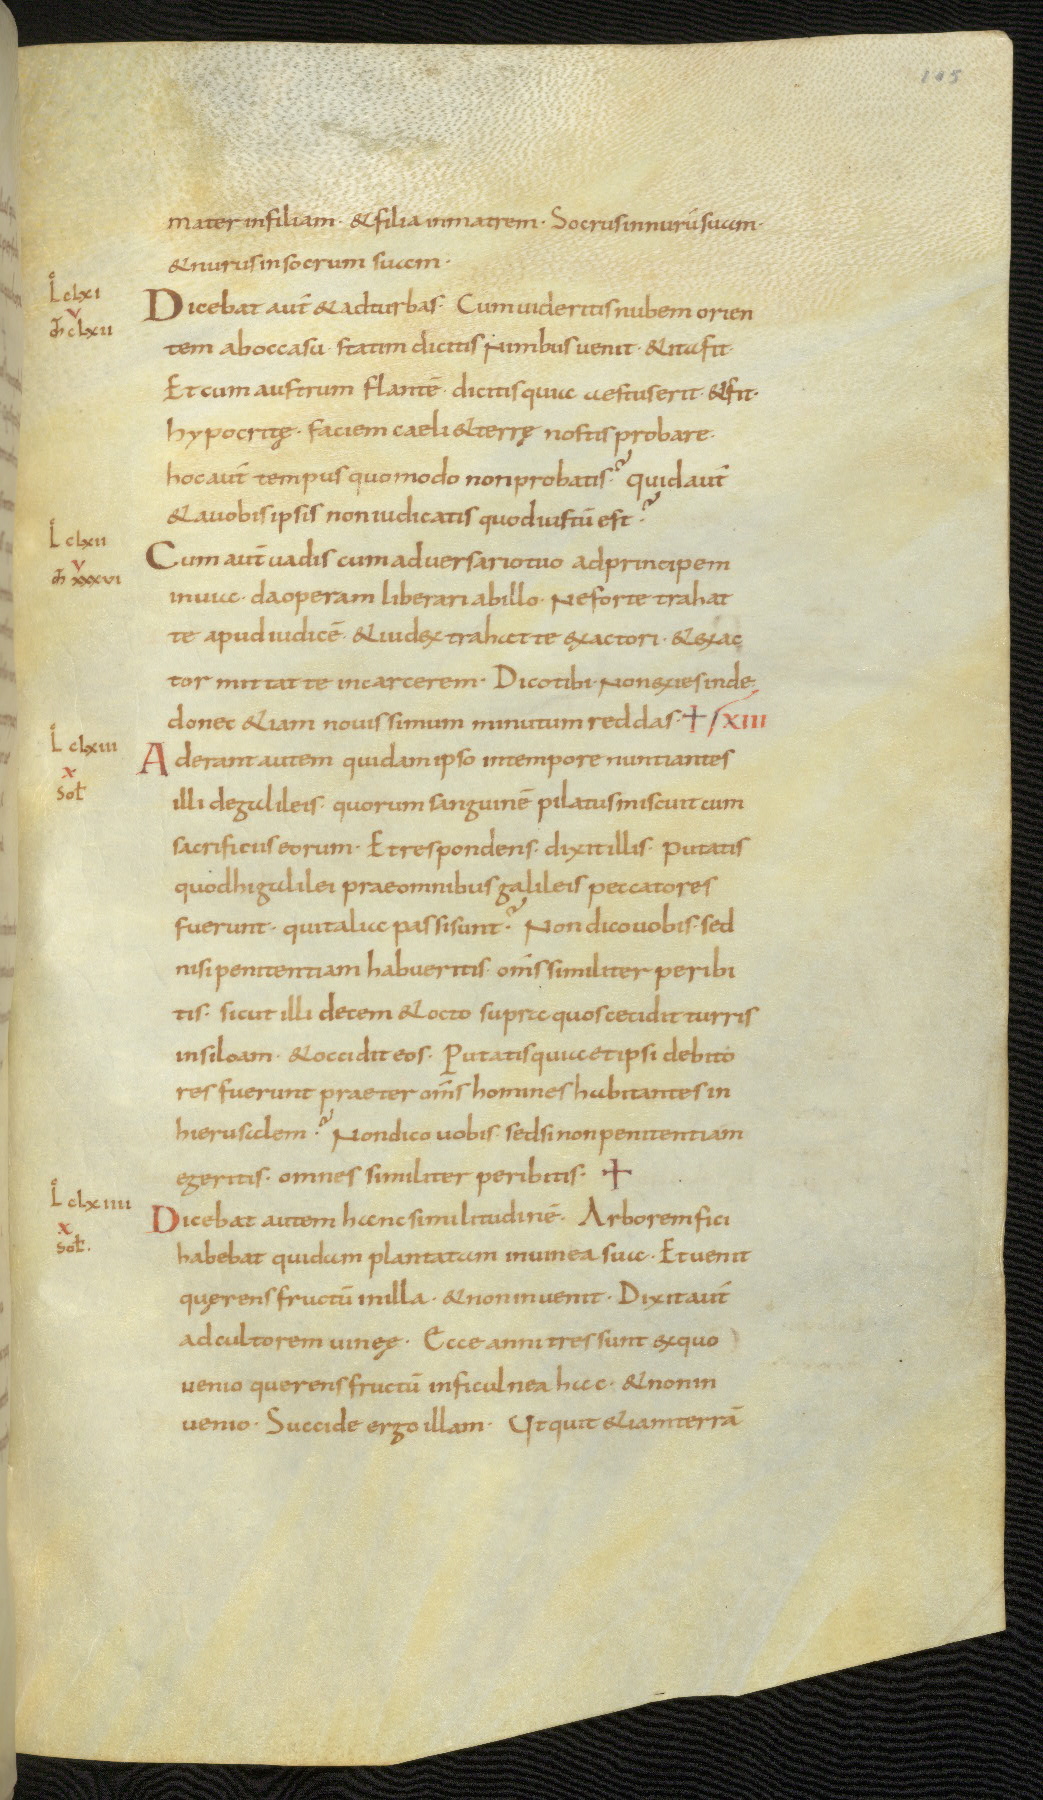 105
mater in filiam · & filia in matrem · Socrus in nurū suam ·
& nurus in socrum suam ·
L clxi
v
m̄ clxii
Dicebat aut̄ & ad turbas · Cum uideritis nubem orien
tem ab occasu · statim dicitis Nimbus uenit · & ita fit
Et cum austrum flantē · dicitis quia aestus erit · & fit ·
hypocritę · faciem caeli & terrę nostis probare ·
hoc aut̄ tempus quomodo non probatis ? quid aut̄
& a uobis ipsis non iudicatis quod iustū est ?
L clxii
v
m̄ xxxvi
Cum aut̄ uadis cum aduersario tuo ad principem
in uia · da operam liberari ab illo · Ne forte trahat
te apud iudicē · & iudex trahat te exactori · & exac
tor mittat te in carcerem · Dico tibi · Non exies inde
donec &iam nouissimum minutum reddas · + / xiii
L clxiii
x
Sol̄
Aderant autem quidam ipso in tempore nuntiantes
illi de galileis · quorum sanguinē pilatus miscuit cum
sacrificiis eorum · Et respondens · dixit illis · Putatis
quod hi galilei prae omnibus galileis peccatores
fuerunt · qui talia passi sunt ? Non dico uobis · sed
nisi penitentiam habueritis · om̄s similiter peribi
tis · sicut illi decem & octo supra quos cecidit turris
in siloam · & occidit eos · Putatis quia et ipsi debito
res fuerunt praeter om̄s homines habitantes in
hierusalem ? Non dico uobis · sed si non penitentiam
egeritis · omnes similiter peribitis · +
L clxiiii
x
Sol̄.
Dicebat autem hanc similitudinē · Arborem fici
habebat quidam plantatam in uinea sua · Et uenit
quęrens fructū in illa · & non inuenit · Dixit aut̄
ad cultorem uineę · Ecce anni tres sunt ex quo
uenio querens fructū in ficulnea hac · & non in
uenio · Succide ergo illam · Ut quit &iam terrā